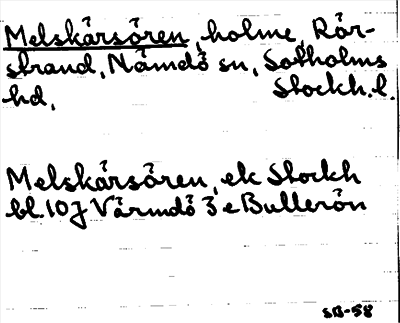 Melskärsören, holme, Rör-
strand, Nämdö sn, Sotholms
hd, Stockh.l.
Melskärsören, ek Stockh
bl. 10J Värmdö 3 e Bullerön
SB-58